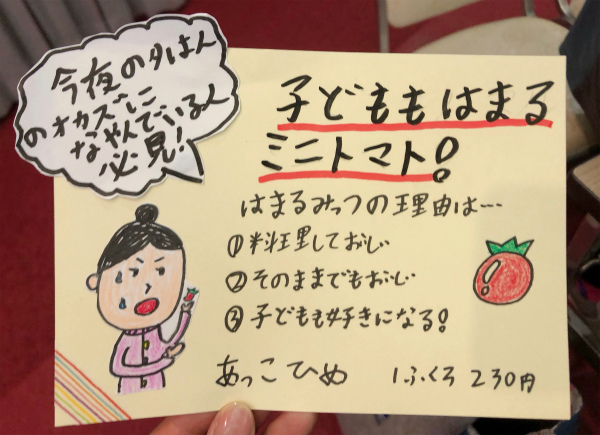 今夜の夕はん
のオカズに
なやんでいる人
必見!
子どももはまる
ミニトマト!
はまるみっつの理由は…
①料理しておいし
②そのままでもおいし
③子どもも好きになる!
あっこひめ 1ふくろ 230円